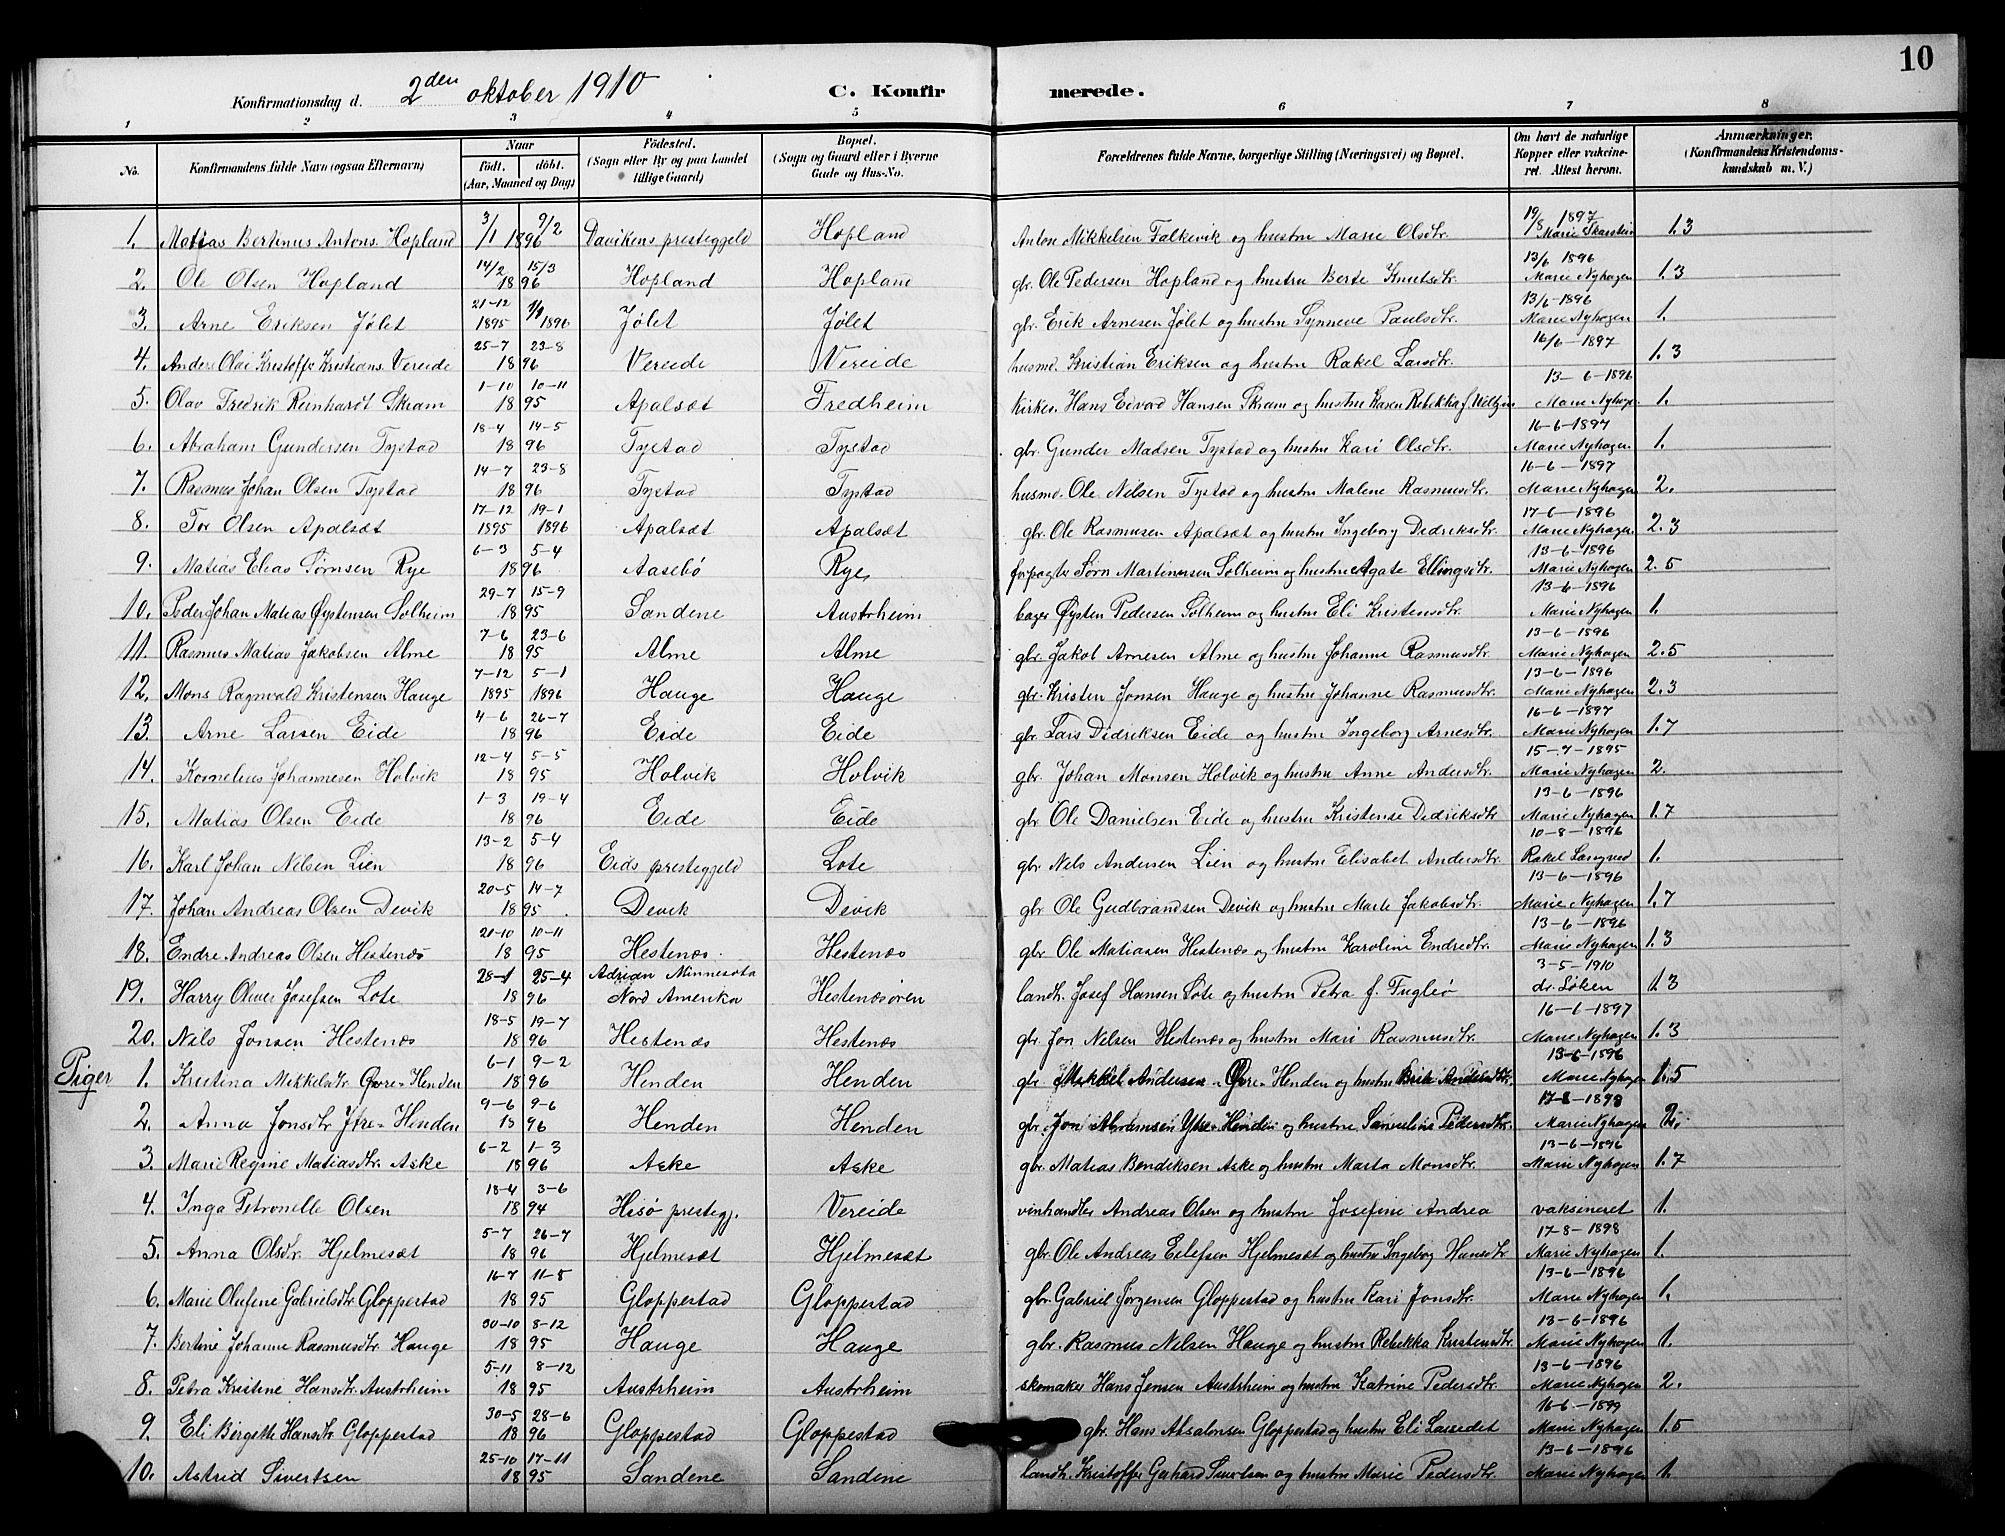 10
Konfirmationsdag d. 2den oktober 1910 C. Konfirmerede.
1 2 3 4 5 6 7 8
No. Konfirmandens fulde Navn (ogsaa Efternavn) Naar Födt, döbt. (Aar, Maaned og Dag) Födested. (Sogn eller By og paa Landet tillige Gaard) Bopæl. (Sogn og Gaard eller i Byerne Gade og Hus-No. Forældrenes fulde Navne, borgerlige Stilling (Næringsvei) og Bopæl. Om havt de naturlige Kopper eller vakcineret. Attest herom. Anmærkninger. (Konfirmandens Kristendomskundskab m. V.)
1. Matias Bertinus Antons. Hopland 3/1 9/2 1896 Davikens prestegjeld Hopland Anton Mikkelsen Falkevik og hustru Marie Olsdtr. 19/8 1897 Marie Skarstein 1.3
2. Ole Olsen Hopland 14/2 15/3 1896 Hopland Hopland gbr. Ole Pedersen Hopland og hustru Berte Knutsdtr. 13/6 1896 Marie Nyhagen 1.3
3. Arne Eriksen Jølet 21-12 1895 1896 Jølet Jølet gbr. Erik Arnesen Jølet og hustru Synneve Paulsdtr. 13/6-1896 Marie Nyhagen 1.
4. Anders Olai Kristoffer Kristians. Vereide 25-7 23-8 1896 Vereide Vereide husmd. Kristian Eriksen og hustru Rakel Larsdtr. 16/6-1897 1.3
5. Olav Fredrik Reinhardt Skram 1-10 10-11 1895 Apalsæt Fredheim kirkes. Hans Eivad Hansen Skram og hustru Karen Rebekka f. 13-6-1896 Marie Nyhagen 1.
6. Abraham Gundersen Tystad 18-4 14-5 1896 Tystad Tystad gbr. Gunder Madsen Tystad og hustru Kari Olsdtr. 16-6-1897 Marie Nyhagen 1.
7. Rasmus Johan Olsen Tystad 14-7 23-8 1896 Tystad Tystad husmd. Ole Nilsen Tystad og hustru Malene Rasmusdtr. 16-6-1897 Marie Nyhagen 2.
8. Tor Olsen Apalsæt 17-12 1895 19-1 1896 Apalsæt Apalsæt gbr. Ole Rasmusen Apalsæt og hustru Ingeborg Didriksdtr. 17-6-1896 Marie Nyhagen 2.3
9. Matias Elias Sørnsen Rye 6-3 5-4 1896 Aasebø Rye forpagter Sørn Martinusen Solheim og hustru Agate Ellingsdtr. 13-6-1896 Marie Nyhagen 2.5
10. Peder Johan Matias Øystensen Solheim 29-7 15-9 1895 Sandene Austrheim bager Øysten Pedersen Solheim og hustru Eli Kristensdtr. 13-6-1896 Marie Nyhagen 1.
11. Rasmus Matias Jakobsen Alme 7-6 23-6 1895 Alme Alme gbr. Jakob Arnesen Alme og hustru Johanne Rasmusdtr. 13-6-1896 Marie Nyhagen 2.5
12. Mons Ragnvald Kristensen Hauge 7-12 1895 5-1 1896 Hauge Hauge gbr. Kristen Jonsen Hauge og hustru Johanne Rasmusdtr. 13-6-1896 Marie Nyhagen 2.3
13. Arne Larsen Eide 4-6 26-7 1896 Eide Eide gbr. Lars Didriksen Eide og hustru Ingeborg Arnesdtr. 16-6-1897 Marie Nyhagen 1.7
14. Kornelius Johannesen Holvik 12-4 5-5 1895 Holvik Holvik gbr. Johan Monsen Holvik og hustru Anne Andersdtr. 15-7-1895 Marie Nyhagen 2.
15. Matias Olsen Eide 1-3 19-4 1896 Eide Eide gbr. Ole Danielsen Eide og hustru Kristense Didriksdtr. 13-6-1896 Marie Nyhagen 1.7
16. Karl Johan Nilsen Lien 13-2 5-4 1896 Eids prestegjeld Lote gbr. Nils Andersen Lien og hustru Elisabet Andersdtr. 10-8-1896 Rakel 1.
17. Johan Andreas Olsen Devik 20-5 14-7 1895 Devik Devik gbr. Ole Gudbrandsen Devik og hustru Marte Jakobsdtr. 13-6-1896 Marie Nyhagen 1.7
18. Endre Andreas Olsen Hestenæs 21-10 10-11 1895 Hestenæs Hestenæs gbr. Ole Matiasen Hestenæs og hustru Karoline Endredtr. 13-6-1896 Marie Nyhagen 1.3
19. Harry Oliver Josefsen Lote 28-1 25-4 1896 Adrian Minnesota Nord Amerika Hestenæsøren landh. Josef Hansen Lote og hustru Petra f. Fugleø 3-5-1910 dr. Løken 1.3
20. Nils Jonsen Hestenæs 18-5 19-7 1896 Hestenæs Hestenæs gbr. Jon Nilsen Hestenæs og hustru Mari Rasmusdtr. 16-6-1897 Marie Nyhagen 1.3
Piger 1. Kristina Mikkelsdtr. Øvre-Henden 6-1 9-2 1896 Henden Henden gbr. Mikkel Andersen Øvre-Henden og hustru Brite Andersdtr. 13-6-1896 Marie Nyhagen 1.5
2. Anna Jonsdtr Ytre-Henden 9-6 9-6 1896 Henden Henden gbr. Jon Abramsen Ytre-Henden og hustru Samueline Pedersdtr. 17-8-1898 Marie Nyhagen 2.
3. Marie Regine Matiasdtr. Aske 6-2 1-3 1896 Aske Aske gbr. Matias Bendiksen Aske og hustru Marta Monsdtr. 13-6-1896 Marie Nyhagen 1.7
4. Inga Petronelle Olsen 18-4 3-6 1894 Hisø prestegj. Vereide vinhandler Andreas Olsen og hustru Josefine Andrea vaksineret 1.
5. Anna Olsdtr. Hjelmesæt 5-7 26-7 1896 Hjelmesæt Hjelmesæt gbr. Ole Andreas Eilefsen Hjelmesæt og hustru Ingeborg Hansdtr 17-8-1898 Marie Nyhagen 1.
6. Marie Olufine Gabrielsdtr. Gloppestad 16-7 11-8 1895 Gloppestad Gloppestad gbr. Gabriel Jørgensen Gloppestad og hustru Kari Jonsdtr. 13-6-1896 Marie Nyhagen 1.
7. Bertine Johanne Rasmusdtr. Hauge 30-10 8-12 1895 Hauge Hauge gbr. Rasmus Nilsen Hauge og hustru Rebekka Kristensdtr 13-6-1896 Marie Nyhagen 1.
8. Petra Kristine Hansdtr. Austrheim 5-11 8-12 1895 Austrheim Austrheim skomaker Hans Jensen Austrheim og hustru Katrine Pedersdtr. 13-6-1896 Marie Nyhagen 2.
9. Eli Birgitte Hansdtr. Gloppestad 30-5 28-6 1896 Gloppestad Gloppestad gbr. Hans Absalonsen Gloppestad og hustru Eli Larsedet 16-6-1899 Marie Nyhagen 1.5
10. Astrid Sivertsen 25-10 17-11 1895 Sandene Sandene landh. Kristoffer Gerhard Sivertsen og hustru Marie Pedersdtr. 13-6-1896 Marie Nyhagen 1.